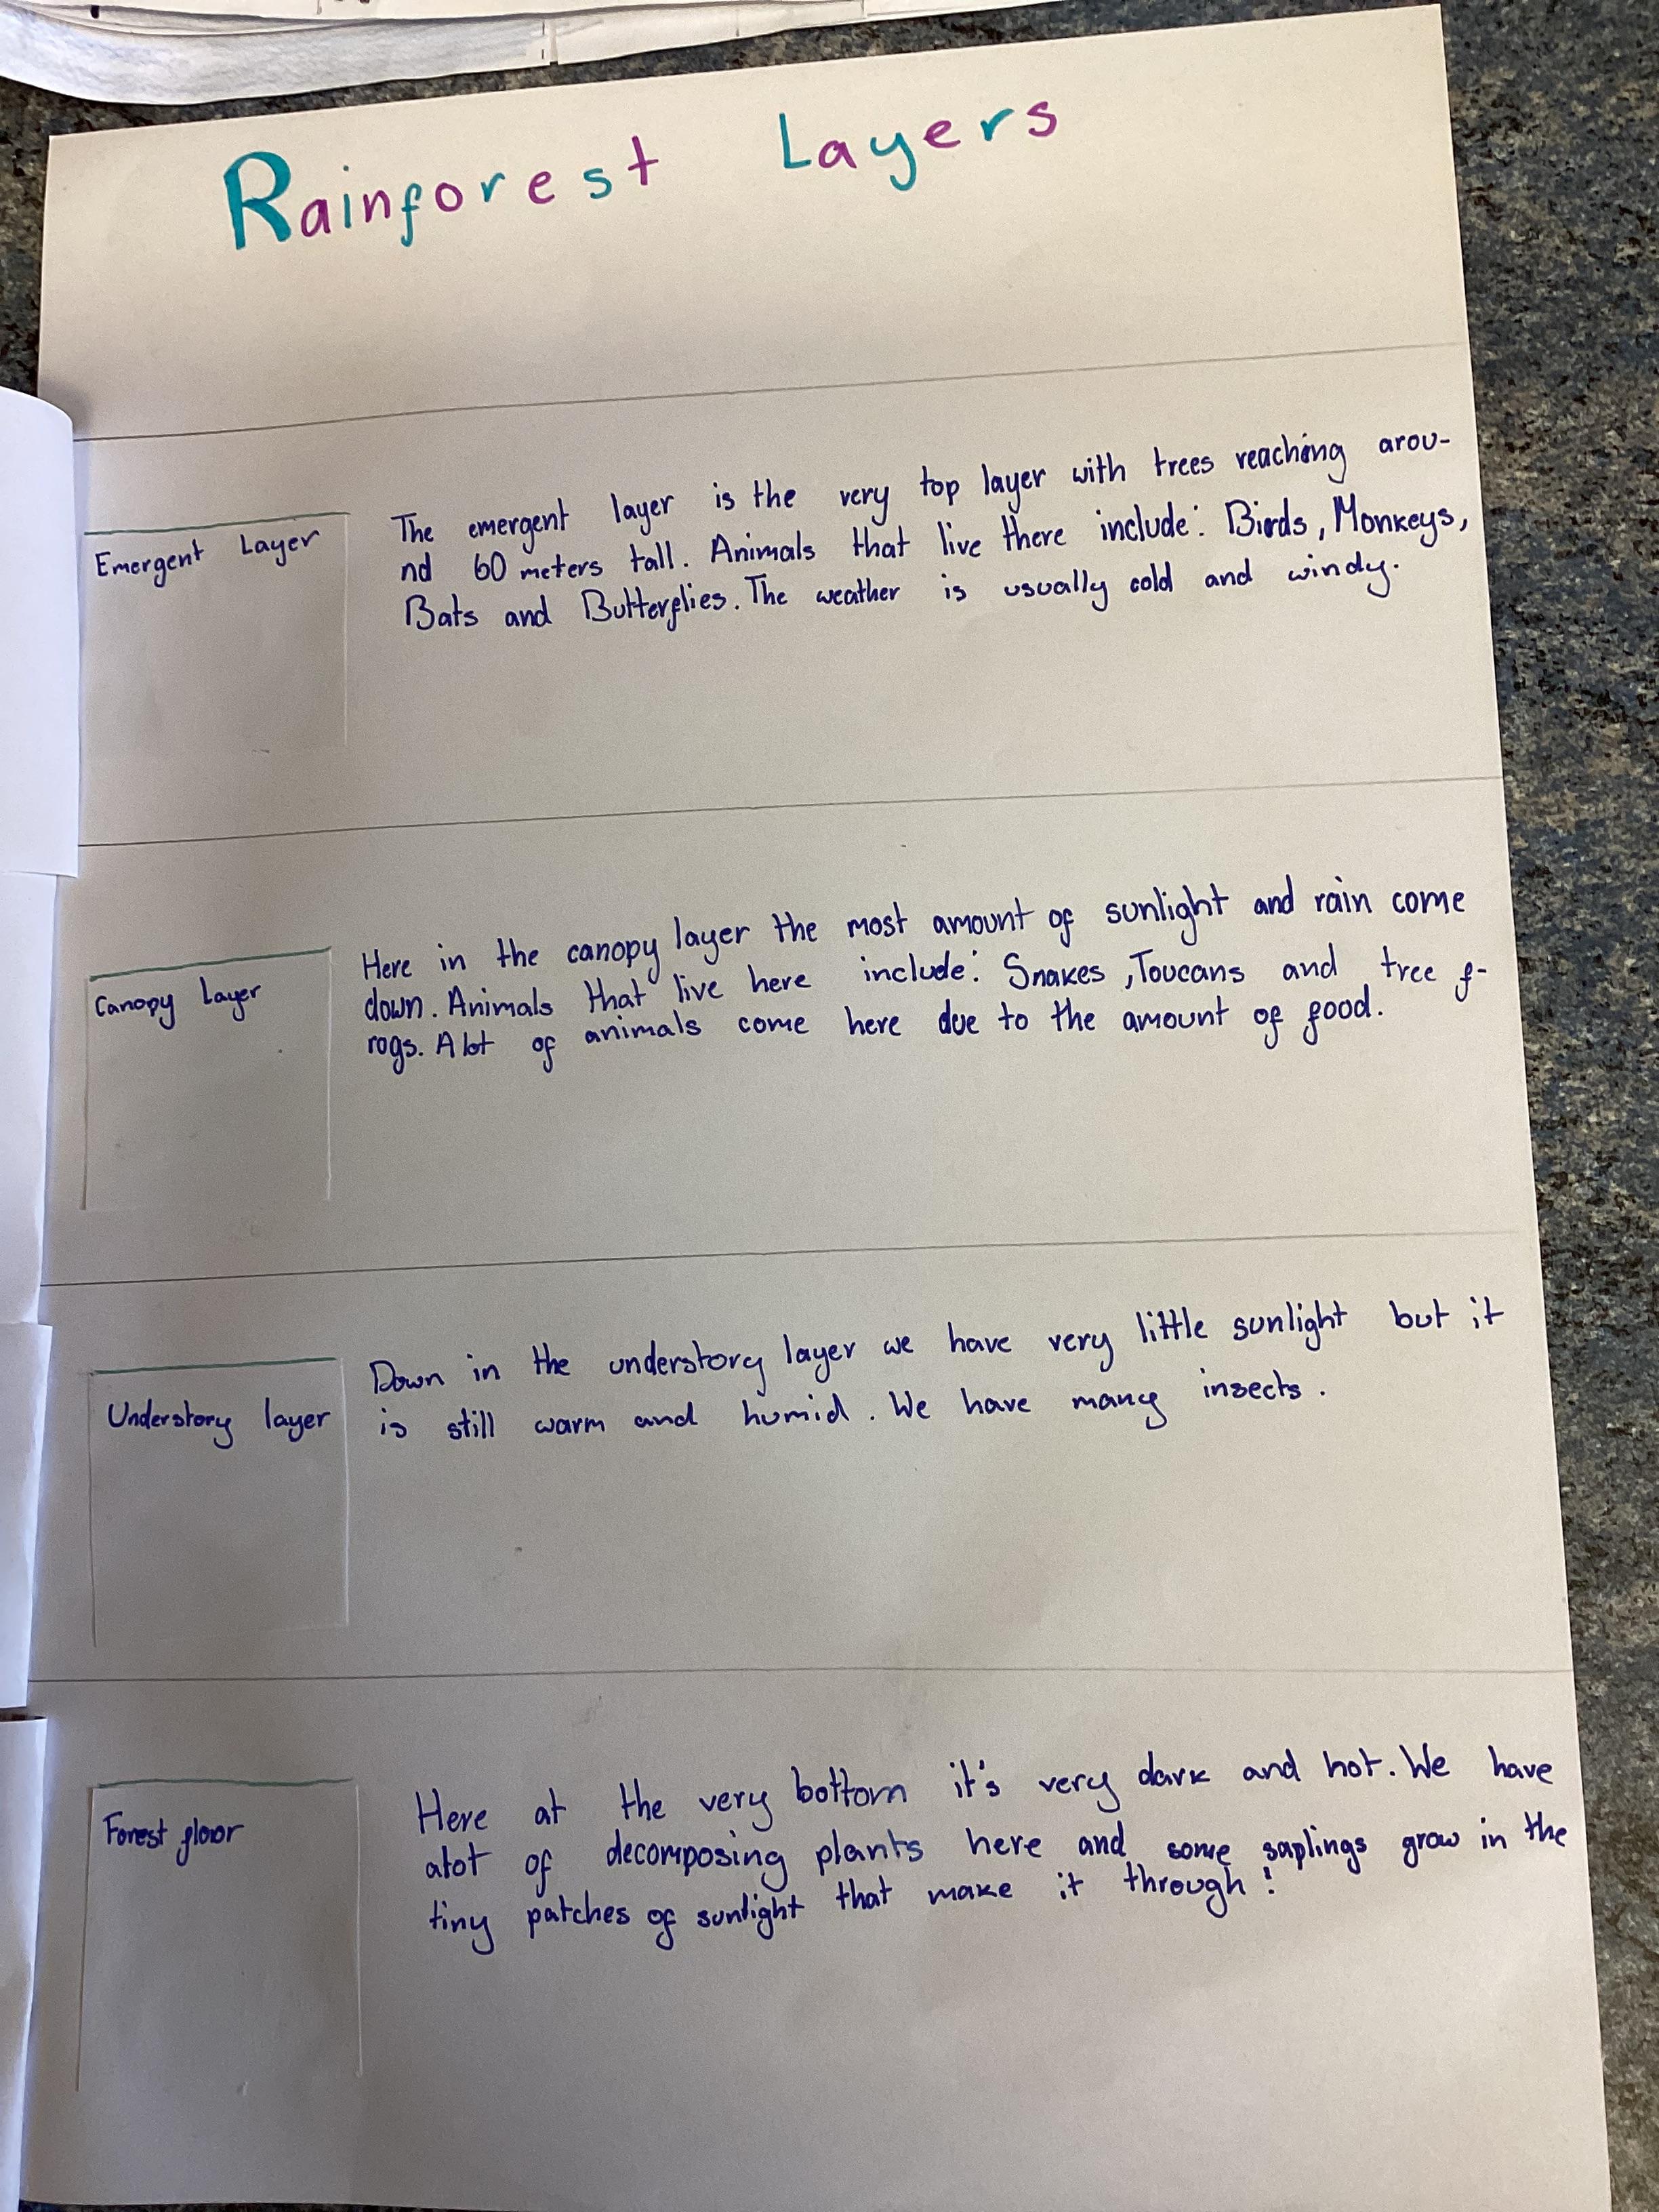 Rainforest Layers
Emergent Layer
The emergent layer is the very top layer with trees reaching arou-
nd 60 meters tall. Animals that live there include: Birds, Monkeys,
Bats and Butterflies. The weather is usually cold and windy.
Canopy Layer
Here in the canopy layer the most amount of sunlight and rain come
down. Animals that live here include: Snakes, Toucans and tree f-
rogs. A lot of animals come here due to the amount of food.
Understory layer
Down in the understory layer we have very little sunlight but it
is still warm and humid. We have many insects.
Forest floor
Here at the very bottom it's very dark and hot. We have
alot of decomposing plants here and some saplings grow in the
tiny patches of sunlight that make it through!